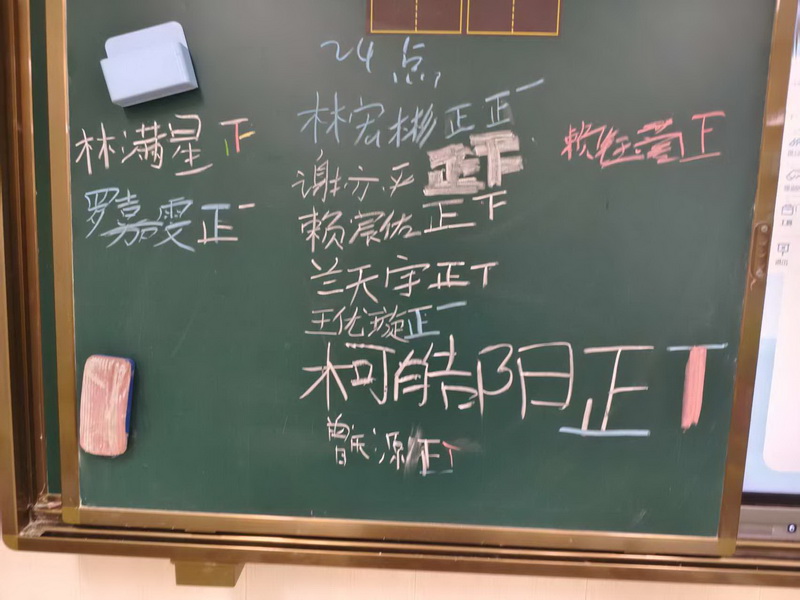 24点
林宏彬正正一
林满星下
赖钰萱下
谢亦平正下
罗嘉雯正一
赖宸佑正下
兰天宇正丅
王优璇正一
柯皓阳正丅
曾 源正丅